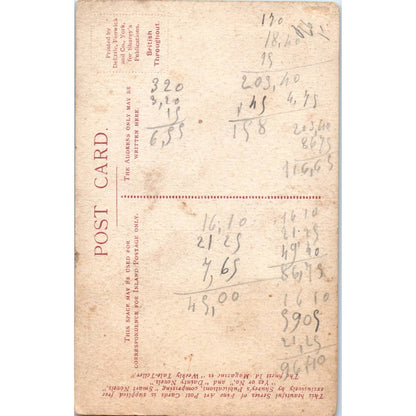 Printed by
Delittle, Fenwick
and Co., York,
for Shurey's
Publications.
British
Throughout.
POST CARD.
THE ADDRESS ONLY MAY BE
WRITTEN HERE.
THIS SPACE MAY BE USED FOR
CORRESPONDENCE FOR INLAND POSTAGE ONLY.
This beautiful Series of Fine Art Post Cards is supplied free
exclusively by Shurey's Publications, comprising "Smart Novels,"
"Yes or No," and "Dainty Novels"
The finest 1d. Magazine is "Weekly Tale-Teller"
170
18,40
15
320
3,20
15
6,55
203,40
45
158
4,75
203,40
8675
116,65
16,10
21 25
7,65
45,00
16 10
21.25
49 40
86,75
16 10
5905
21,25
96,40